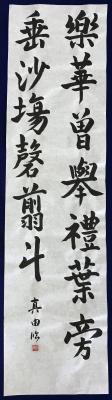 樂華曾舉禮葉旁
垂沙塲磬翦斗
真由臨